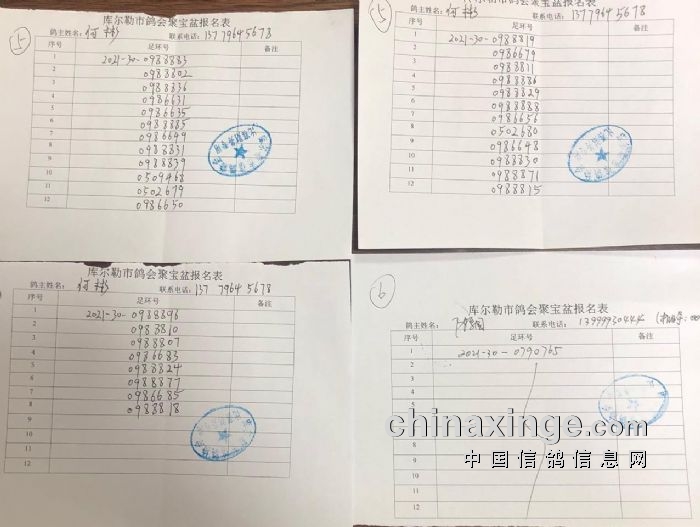 5
库尔勒市鸽会聚宝盆报名表
鸽主姓名：何彬 联系电话：137 7964 5678
序号 足环号 备注
1 2021-30-0988883
2 0988802
3 0988836
4 0986631
5 0986635
6 0988885
7 0986649
8 0988831
9 0988839
10 0509468
11 0502679
12 0986650
5
库尔勒市鸽会聚宝盆报名表
鸽主姓名：何彬 联系电话：137 7964 5678
序号 足环号 备注
1 2021-30-0988819
2 0986679
3 0988811
4 0988886
5 0988829
6 0988888
7 0986656
8 0502680
9 0986648
10 0988830
11 0988871
12 0988815
库尔勒市鸽会聚宝盆报名表
鸽主姓名：何彬 联系电话：137 7964 5678
序号 足环号 备注
1 2021-30-0988896
2 0988810
3 0988807
4 0986683
5 0988824
6 0988877
7 0986685
8 0988818
9
10
11
12
6
库尔勒市鸽会聚宝盆报名表
鸽主姓名： 联系电话：13999930444
序号 足环号 备注
1 2021-30-0790765
2
3
4
5
6
7
8
9
10
11
12
chinaxinge.com
中国信鸽信息网